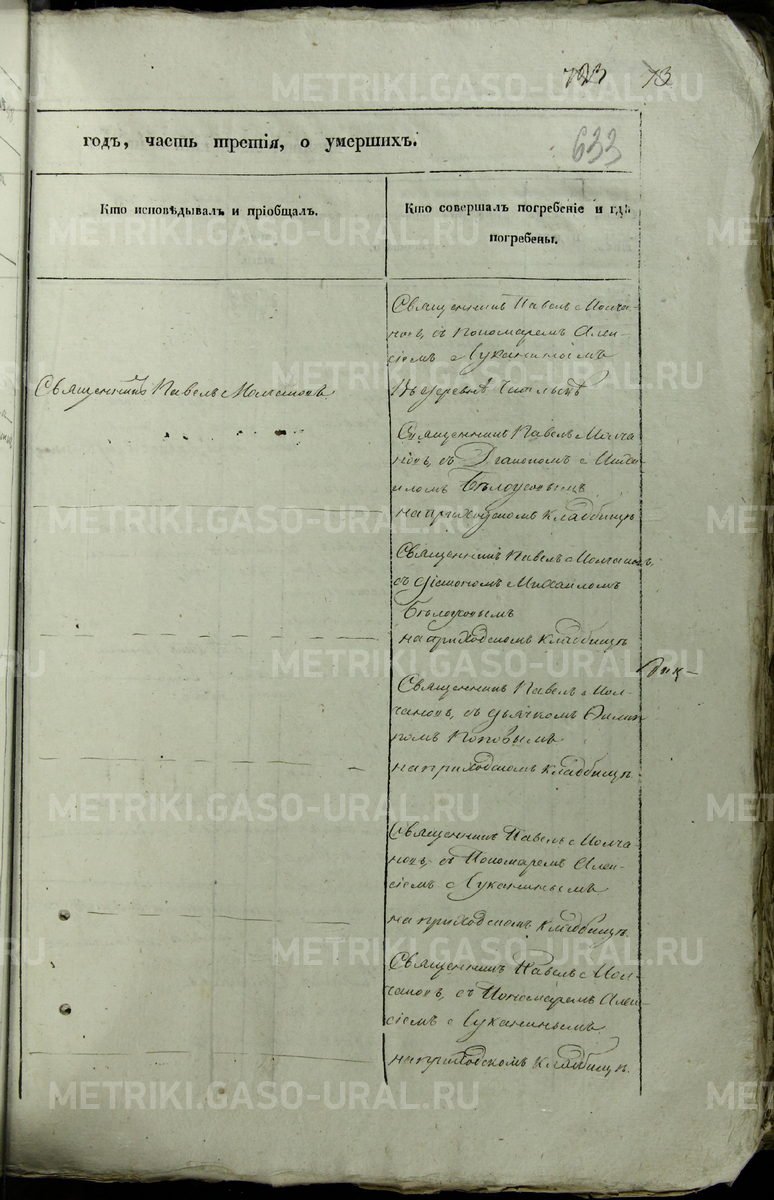 723 73
633
годъ, часть третія, о умершихъ.
Кто исповѣдывалъ и пріобщалъ.
Кто совершалъ погребеніе и гдѣ
погребены.
Священникъ Павелъ Молча-
новъ, съ Пономаремъ Алек-
сіемъ Луканинымъ
Священникъ Павелъ Молчановъ
Въ деревнѣ
Священникъ Павелъ Молча-
новъ, съ Діакономъ Миха-
иломъ Бѣлоусовымъ
на приходскомъ кладбищѣ
Священникъ Павелъ Молчановъ,
съ діакономъ Михаиломъ
Бѣлоусовымъ
на приходскомъ кладбищѣ
Священникъ Павелъ Мол-
чановъ, съ дьячкомъ Филип-
помъ Поповымъ
на приходскомъ кладбищѣ.
Священникъ Павелъ Молча-
новъ, съ Пономаремъ Алек-
сіемъ Луканинымъ
на приходскомъ кладбищѣ.
Священникъ Павелъ Мол-
чановъ, съ Пономаремъ Алек-
сіемъ Луканинымъ
на приходскомъ кладбищѣ.
METRIKI.GASO-URAL.RU